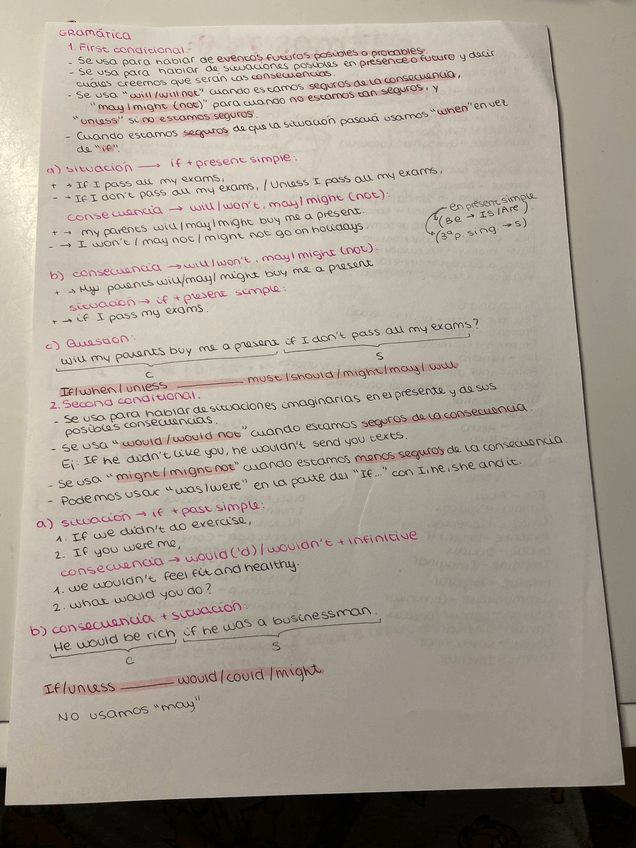 GRAMÁTICA
1. First conditional
- Se usa para hablar de eventos futuros posibles o probables.
- Se usa para hablar de situaciones posibles en presente o futuro y decir
cuáles creemos que serán las consecuencias.
- Se usa "will/will not" cuando estamos seguros de la consecuencia,
"may/might (not)" para cuando no estamos tan seguros, y
"unless" si no estamos seguros.
- Cuando estamos seguros de que la situación pasará usamos "when" en vez
de "if".
a) situación → if + present simple:
+ → If I pass all my exams,
- → If I don't pass all my exams, / Unless I pass all my exams,
consecuencia → will/won't, may/might (not):
+ → my parents will/may/might buy me a present.
- → I won't / may not / might not go on holidays.
en present simple
(Be → Is/Are)
(3ª p. sing → s)
b) consecuencia → will/won't, may/might (not):
+ → My parents will/may/might buy me a present
situación → if + present simple:
+ → if I pass my exams.
c) Question:
Will my parents buy me a present if I don't pass all my exams?
C S
If/when/unless ______ must/should/might/may/will
2. Second conditional.
- Se usa para hablar de situaciones imaginarias en el presente y de sus
posibles consecuencias.
- Se usa "would/would not" cuando estamos seguros de la consecuencia.
Ej: If he didn't like you, he wouldn't send you texts.
- Se usa "might/might not" cuando estamos menos seguros de la consecuencia.
- Podemos usar "was/were" en la parte del "If..." con I, he, she and it.
a) situación → if + past simple:
1. If we didn't do exercise,
2. If you were me,
consecuencia → would('d) / wouldn't + infinitive
1. we wouldn't feel fit and healthy.
2. what would you do?
b) consecuencia + situación:
He would be rich if he was a businessman.
C S
If/unless ______ would/could/might
No usamos "may"